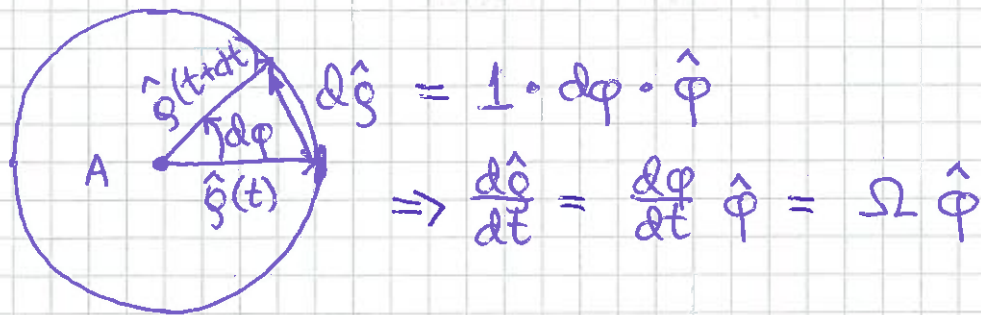 A
ρ̂(t+dt)
dφ
ρ̂(t)
dρ̂ = 1 · dφ · φ̂
⇒ dρ̂/dt = dφ/dt φ̂ = Ω φ̂